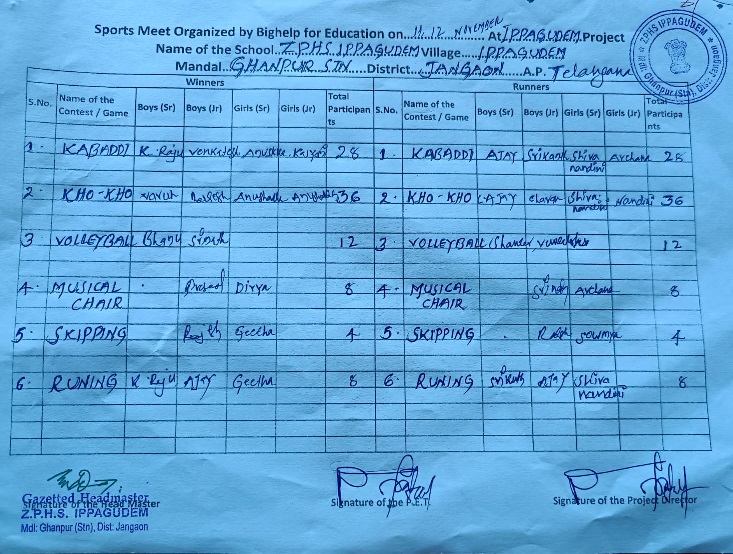 Sports Meet Organized by Bighelp for Education on..11, 12 NOVEMBER......At IPPAGUDEM Project
Name of the School..Z.P.H.S IPPAGUDEM Village....IPPAGUDEM
Mandal..GHANPUR STN...District...JANGAON.....A.P. Telangana
Z.P.H.S IPPAGUDEM
Winners Runners
S.No. Name of the Contest / Game Boys (Sr) Boys (Jr) Girls (Sr) Girls (Jr) Total Participants S.No. Name of the Contest / Game Boys (Sr) Boys (Jr) Girls (Sr) Girls (Jr) Total Participants
1. KABADDI K. Raju Venkatesh 28 1. KABADDI AJAY Srikanth Shiva nandini Archana 28
2. KHO-KHO Anusha 36 2. KHO-KHO AJAY Shiva nandini Nandini 36
3 VOLLEYBALL Bhanu 12 3. VOLLEYBALL 12
4. MUSICAL CHAIR . Divya 8 4. MUSICAL CHAIR Archana 8
5. SKIPPING Geetha 4 5. SKIPPING . Sowmya 4
6. RUNING K Raju AJAY Geetha 8 6. RUNING AJAY Shiva nandini 8
Gazetted Headmaster
Signature of the Head Master
Z.P.H.S. IPPAGUDEM
Mdl: Ghanpur (Stn), Dist: Jangaon
Signature of the P.E.T.
Signature of the Project Director